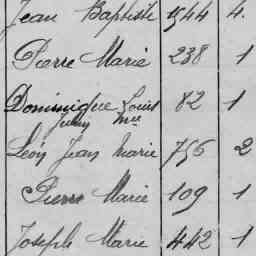 Jean Baptiste 1544 4.
Pierre Marie 238 1
Dominique Louis 82 1
Mie
Léon Jean Marie 756 2
Pierre Marie 109 1
Joseph Marie 442 1